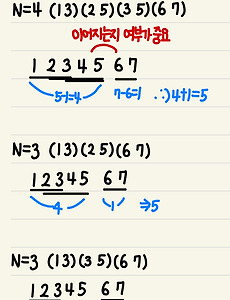 N=4 (13)(25)(35)(67)
이어지는지 여부가 중요
1 2 3 4 5 6 7
5-1=4 7-6=1 ∴)4+1=5
N=3 (13)(25)(67)
1 2 3 4 5 6 7
4 1 ⇒5
N=3 (13)(35)(67)
1 2 3 4 5 6 7